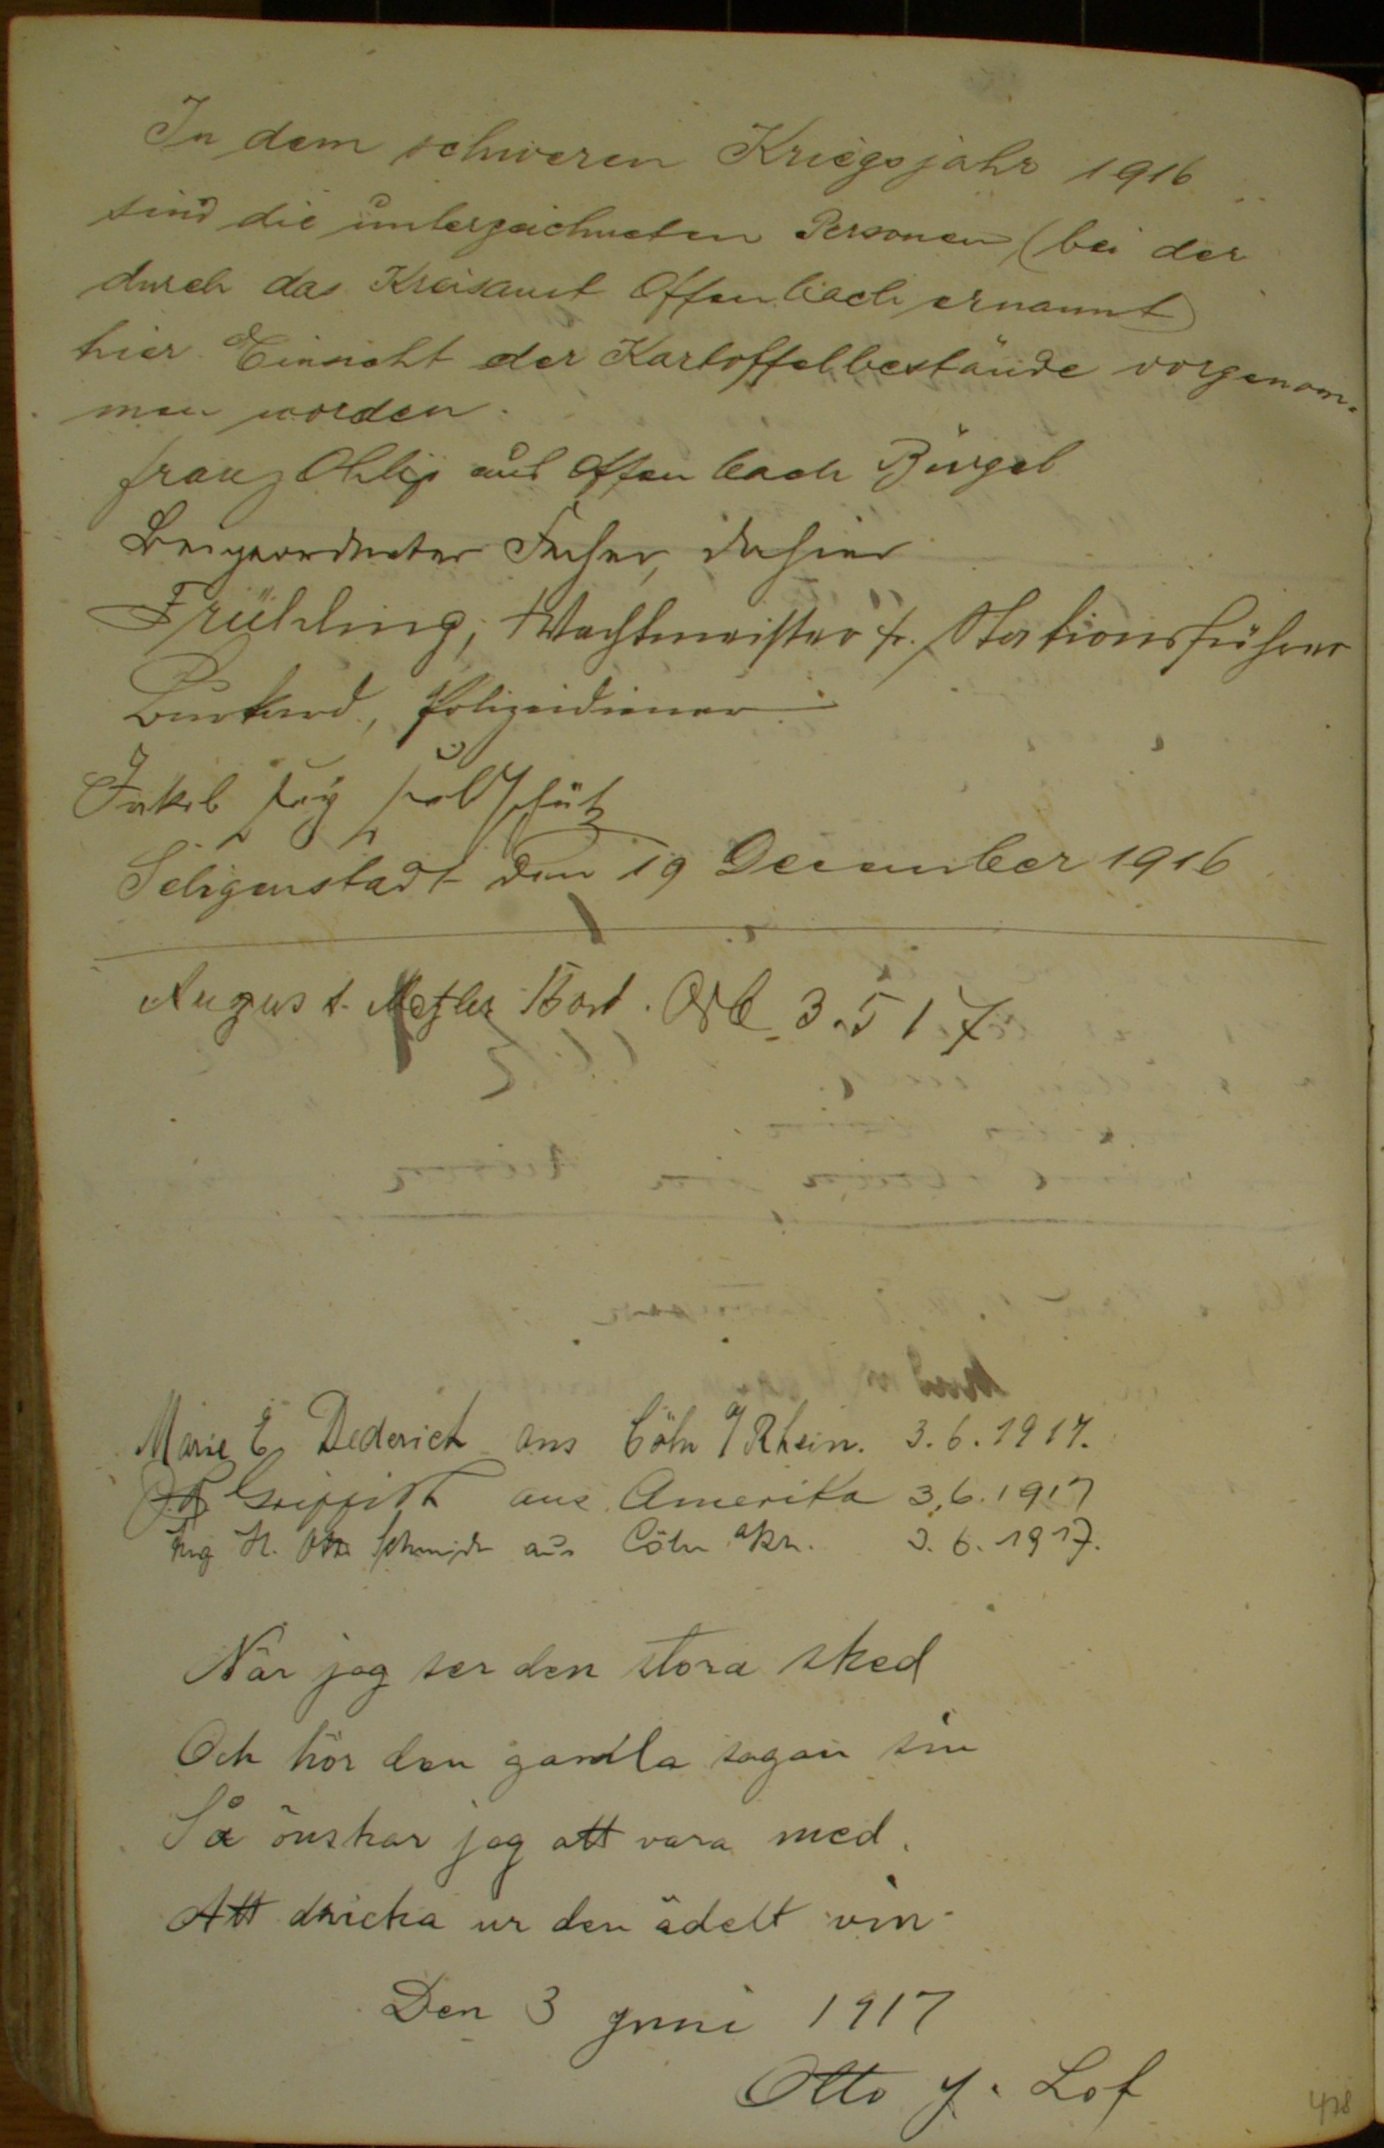 In dem schweren Kriegsjahr 1916
sind die unterzeichneten Personen (bei der
durch das Kreisamt Offenbach ernannt)
hier Einsicht der Kartoffelbestände vorgenom-
men worden.
Franz Ohlig aus Offenbach Bürgel
Beigeordneter Fecher, dahier
Frühling, Wachtmeister u. Stationsführer
Burkard, Polizeidiener
Jakob Feldschütz
Seligenstadt den 19 December 1916
August Metzler Bad Orb 3.5 17
Marie E. Dederich aus Cöln a/Rhein. 3.6.1917.
Griffith aus Amerika 3.6.1917
Ing H. Otto Schmidt aus Cöln a Rh. 3.6.1917.
När jag ser den stora sked
Och hör den gamla sagan sin
Så önskar jag att vara med.
Att dricka ur den ädelt vin
Den 3 Juni 1917
Otto J. Lof
428